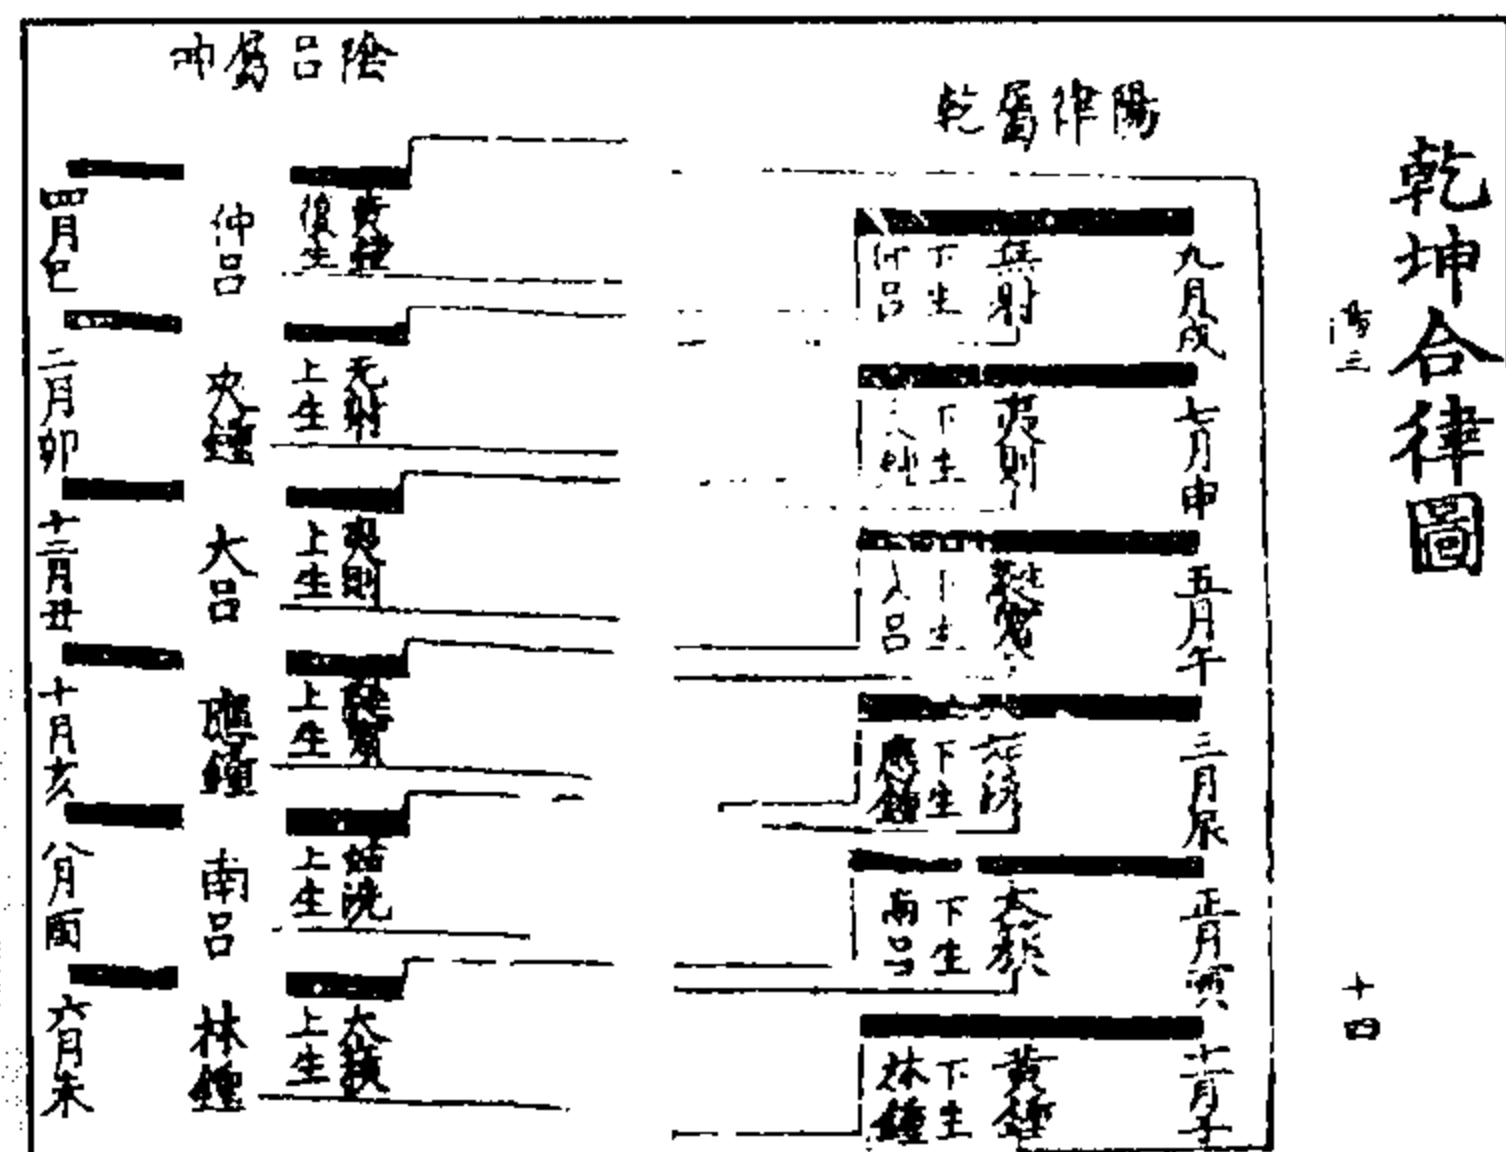 乾坤合律圖
十四
陽律屬乾
九月戌
無射
下生
仲呂
七月申
夷則
下生
五月午
蕤賓
下生
呂
三月辰
姑洗
下生
應鍾
正月寅
太蔟
下生
南呂
十一月子
黃鍾
下生
林鍾
陰呂屬坤
黃鍾
復生
仲呂
四月巳
无射
上生
夾鍾
二月卯
夷則
上生
大呂
十二月丑
蕤賓
上生
應鍾
十月亥
姑洗
上生
南呂
八月酉
太蔟
上生
林鍾
六月未